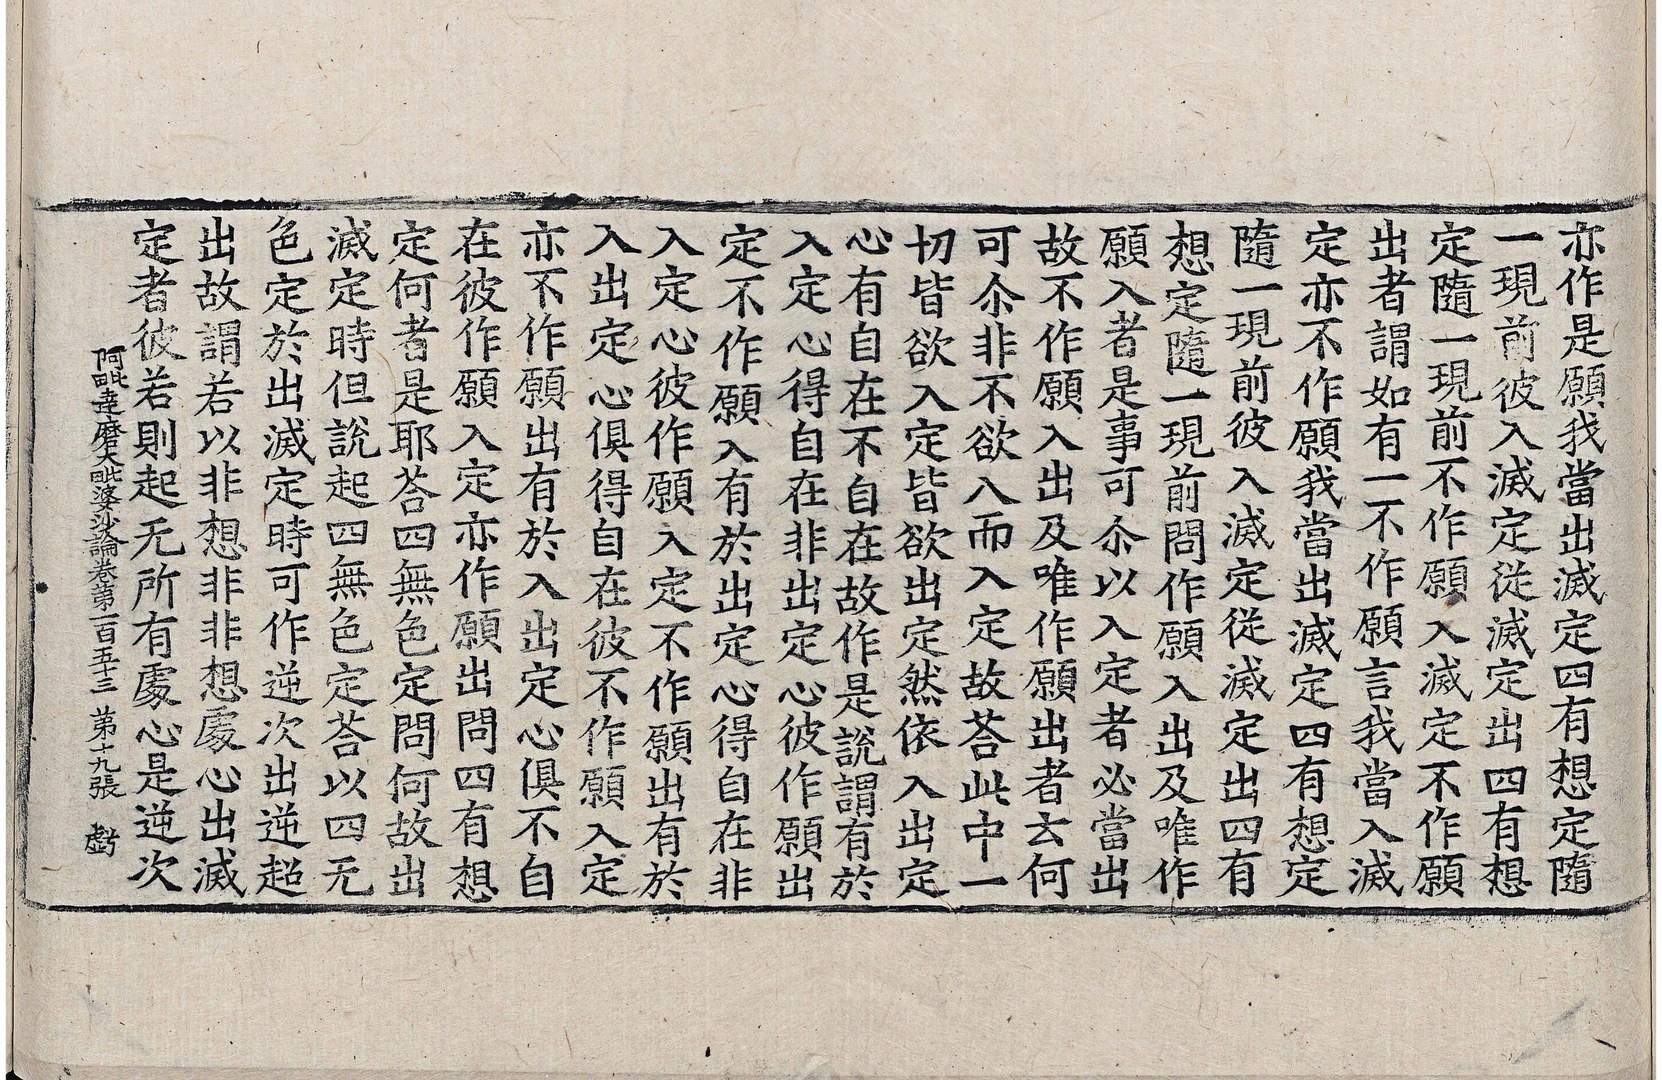 亦作是願我當出滅定四有想定隨
一現前彼入滅定從滅定出四有想
定隨一現前不作願入滅定不作願
出者謂如有一不作願言我當入滅
定亦不作願我當出滅定四有想定
隨一現前彼入滅定從滅定出四有
想定隨一現前問作願入出及唯作
願入者是事可尒以入定者必當出
故不作願入出及唯作願出者云何
可尒非不欲入而入定故荅此中一
切皆欲入定皆欲出定然依入出定
心有自在不自在故作是說謂有於
入定心得自在非出定心彼作願出
定不作願入有於出定心得自在非
入定心彼作願入定不作願出有於
入出定心俱得自在彼不作願入定
亦不作願出有於入出定心俱不自
在彼作願入定亦作願出問四有想
定何者是耶荅四無色定問何故出
滅定時但說起四無色定荅以四无
色定於出滅定時可作逆次出逆超
出故謂若以非想非非想處心出滅
定者彼若則起无所有處心是逆次
阿毗達磨大毗婆沙論卷第一百五十三 第十九張 虧